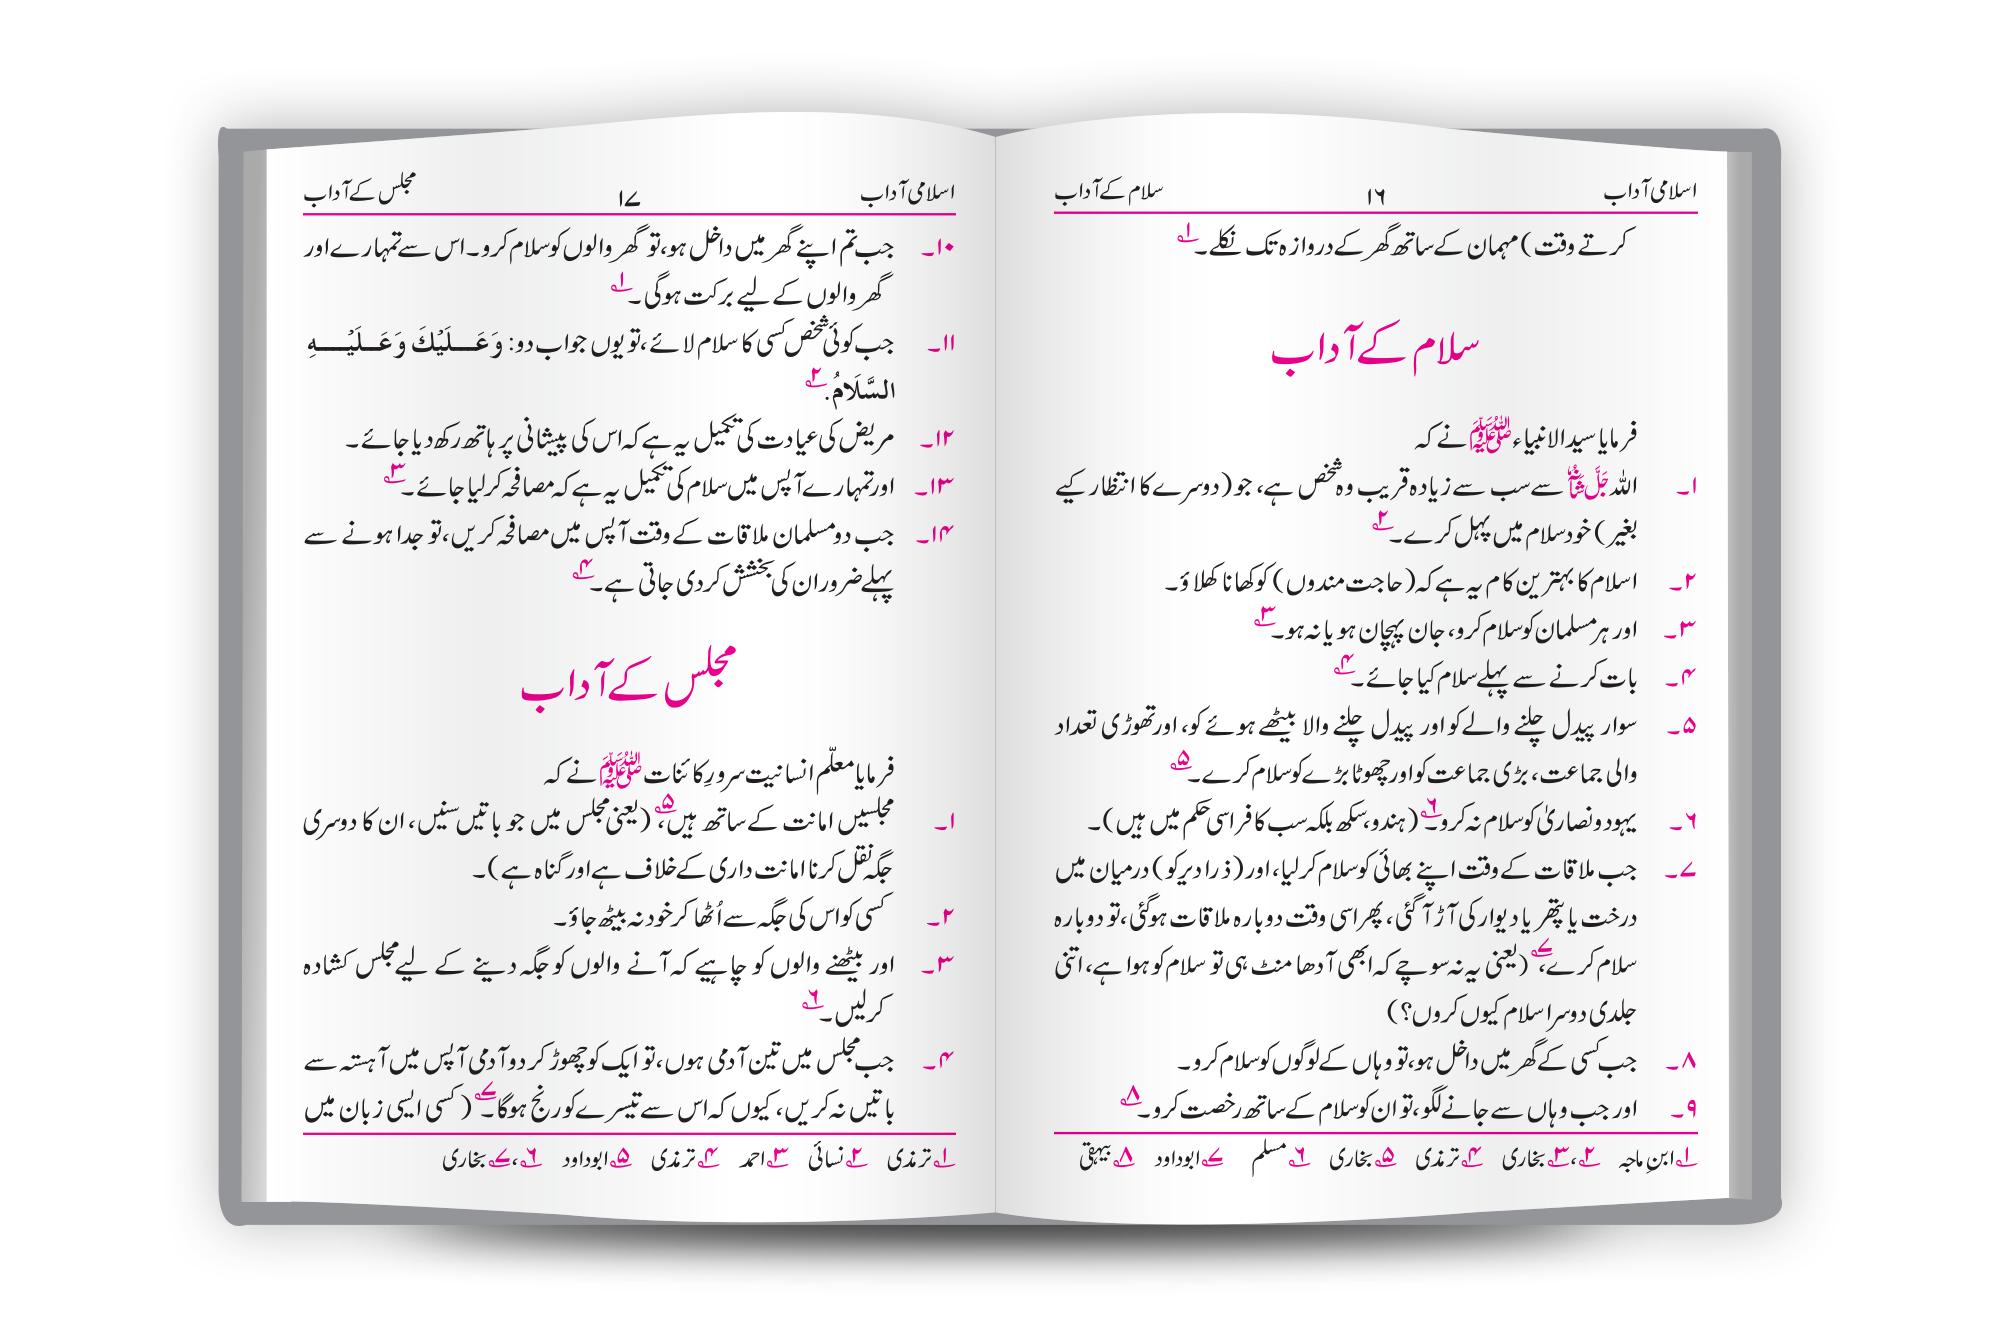 اسلامی آداب ۱۶ سلام کے آداب
کرتے وقت) مہمان کے ساتھ گھر کے دروازہ تک نکلے۔ ۱
سلام کے آداب
فرمایا سید الانبیاء ﷺ نے کہ
۱۔ اللہ جَلَّ شَانُہٗ سے سب سے زیادہ قریب وہ شخص ہے، جو (دوسرے کا انتظار کیے
بغیر) خود سلام میں پہل کرے۔ ۲
۲۔ اسلام کا بہترین کام یہ ہے کہ (حاجت مندوں) کو کھانا کھلاؤ۔
۳۔ اور ہر مسلمان کو سلام کرو، جان پہچان ہو یا نہ ہو۔ ۳
۴۔ بات کرنے سے پہلے سلام کیا جائے۔ ۴
۵۔ سوار پیدل چلنے والے کو اور پیدل چلنے والا بیٹھے ہوئے کو، اور تھوڑی تعداد
والی جماعت، بڑی جماعت کو اور چھوٹا بڑے کو سلام کرے۔ ۵
۶۔ یہود و نصاریٰ کو سلام نہ کرو۔ ۶ (ہندو، سکھ بلکہ سب کافر اسی حکم میں ہیں)۔
۷۔ جب ملاقات کے وقت اپنے بھائی کو سلام کر لیا، اور (ذرا دیر کو) درمیان میں
درخت یا پتھر یا دیوار کی آڑ آ گئی، پھر اسی وقت دوبارہ ملاقات ہو گئی، تو دوبارہ
سلام کرے، ۷ (یعنی یہ نہ سوچے کہ ابھی آدھا منٹ ہی تو سلام کو ہوا ہے، اتنی
جلدی دوسرا سلام کیوں کروں؟)
۸۔ جب کسی کے گھر میں داخل ہو، تو وہاں کے لوگوں کو سلام کرو۔
۹۔ اور جب وہاں سے جانے لگو، تو ان کو سلام کے ساتھ رخصت کرو۔ ۸
۱ ابنِ ماجہ ۲، ۳ بخاری ۴ ترمذی ۵ بخاری ۶ مسلم ۷ ابوداود ۸ بیہقی
اسلامی آداب ۱۷ مجلس کے آداب
۱۰۔ جب تم اپنے گھر میں داخل ہو، تو گھر والوں کو سلام کرو۔ اس سے تمہارے اور
گھر والوں کے لیے برکت ہوگی۔ ۱
۱۱۔ جب کوئی شخص کسی کا سلام لائے، تو یوں جواب دو: وَعَلَيْكَ وَعَلَيْهِ
السَّلَامُ. ۲
۱۲۔ مریض کی عیادت کی تکمیل یہ ہے کہ اس کی پیشانی پر ہاتھ رکھ دیا جائے۔
۱۳۔ اور تمہارے آپس میں سلام کی تکمیل یہ ہے کہ مصافحہ کر لیا جائے۔ ۳
۱۴۔ جب دو مسلمان ملاقات کے وقت آپس میں مصافحہ کریں، تو جدا ہونے سے
پہلے ضرور ان کی بخشش کر دی جاتی ہے۔ ۴
مجلس کے آداب
فرمایا معلّم انسانیت سرورِ کائنات ﷺ نے کہ
۱۔ مجلسیں امانت کے ساتھ ہیں، ۵ (یعنی مجلس میں جو باتیں سنیں، ان کا دوسری
جگہ نقل کرنا امانت داری کے خلاف ہے اور گناہ ہے)۔
۲۔ کسی کو اس کی جگہ سے اُٹھا کر خود نہ بیٹھ جاؤ۔
۳۔ اور بیٹھنے والوں کو چاہیے کہ آنے والوں کو جگہ دینے کے لیے مجلس کشادہ
کر لیں۔ ۶
۴۔ جب مجلس میں تین آدمی ہوں، تو ایک کو چھوڑ کر دو آدمی آپس میں آہستہ سے
باتیں نہ کریں، کیوں کہ اس سے تیسرے کو رنج ہوگا۔ ۷ (کسی ایسی زبان میں
۱ ترمذی ۲ نسائی ۳ احمد ۴ ترمذی ۵ ابوداود ۶، ۷ بخاری